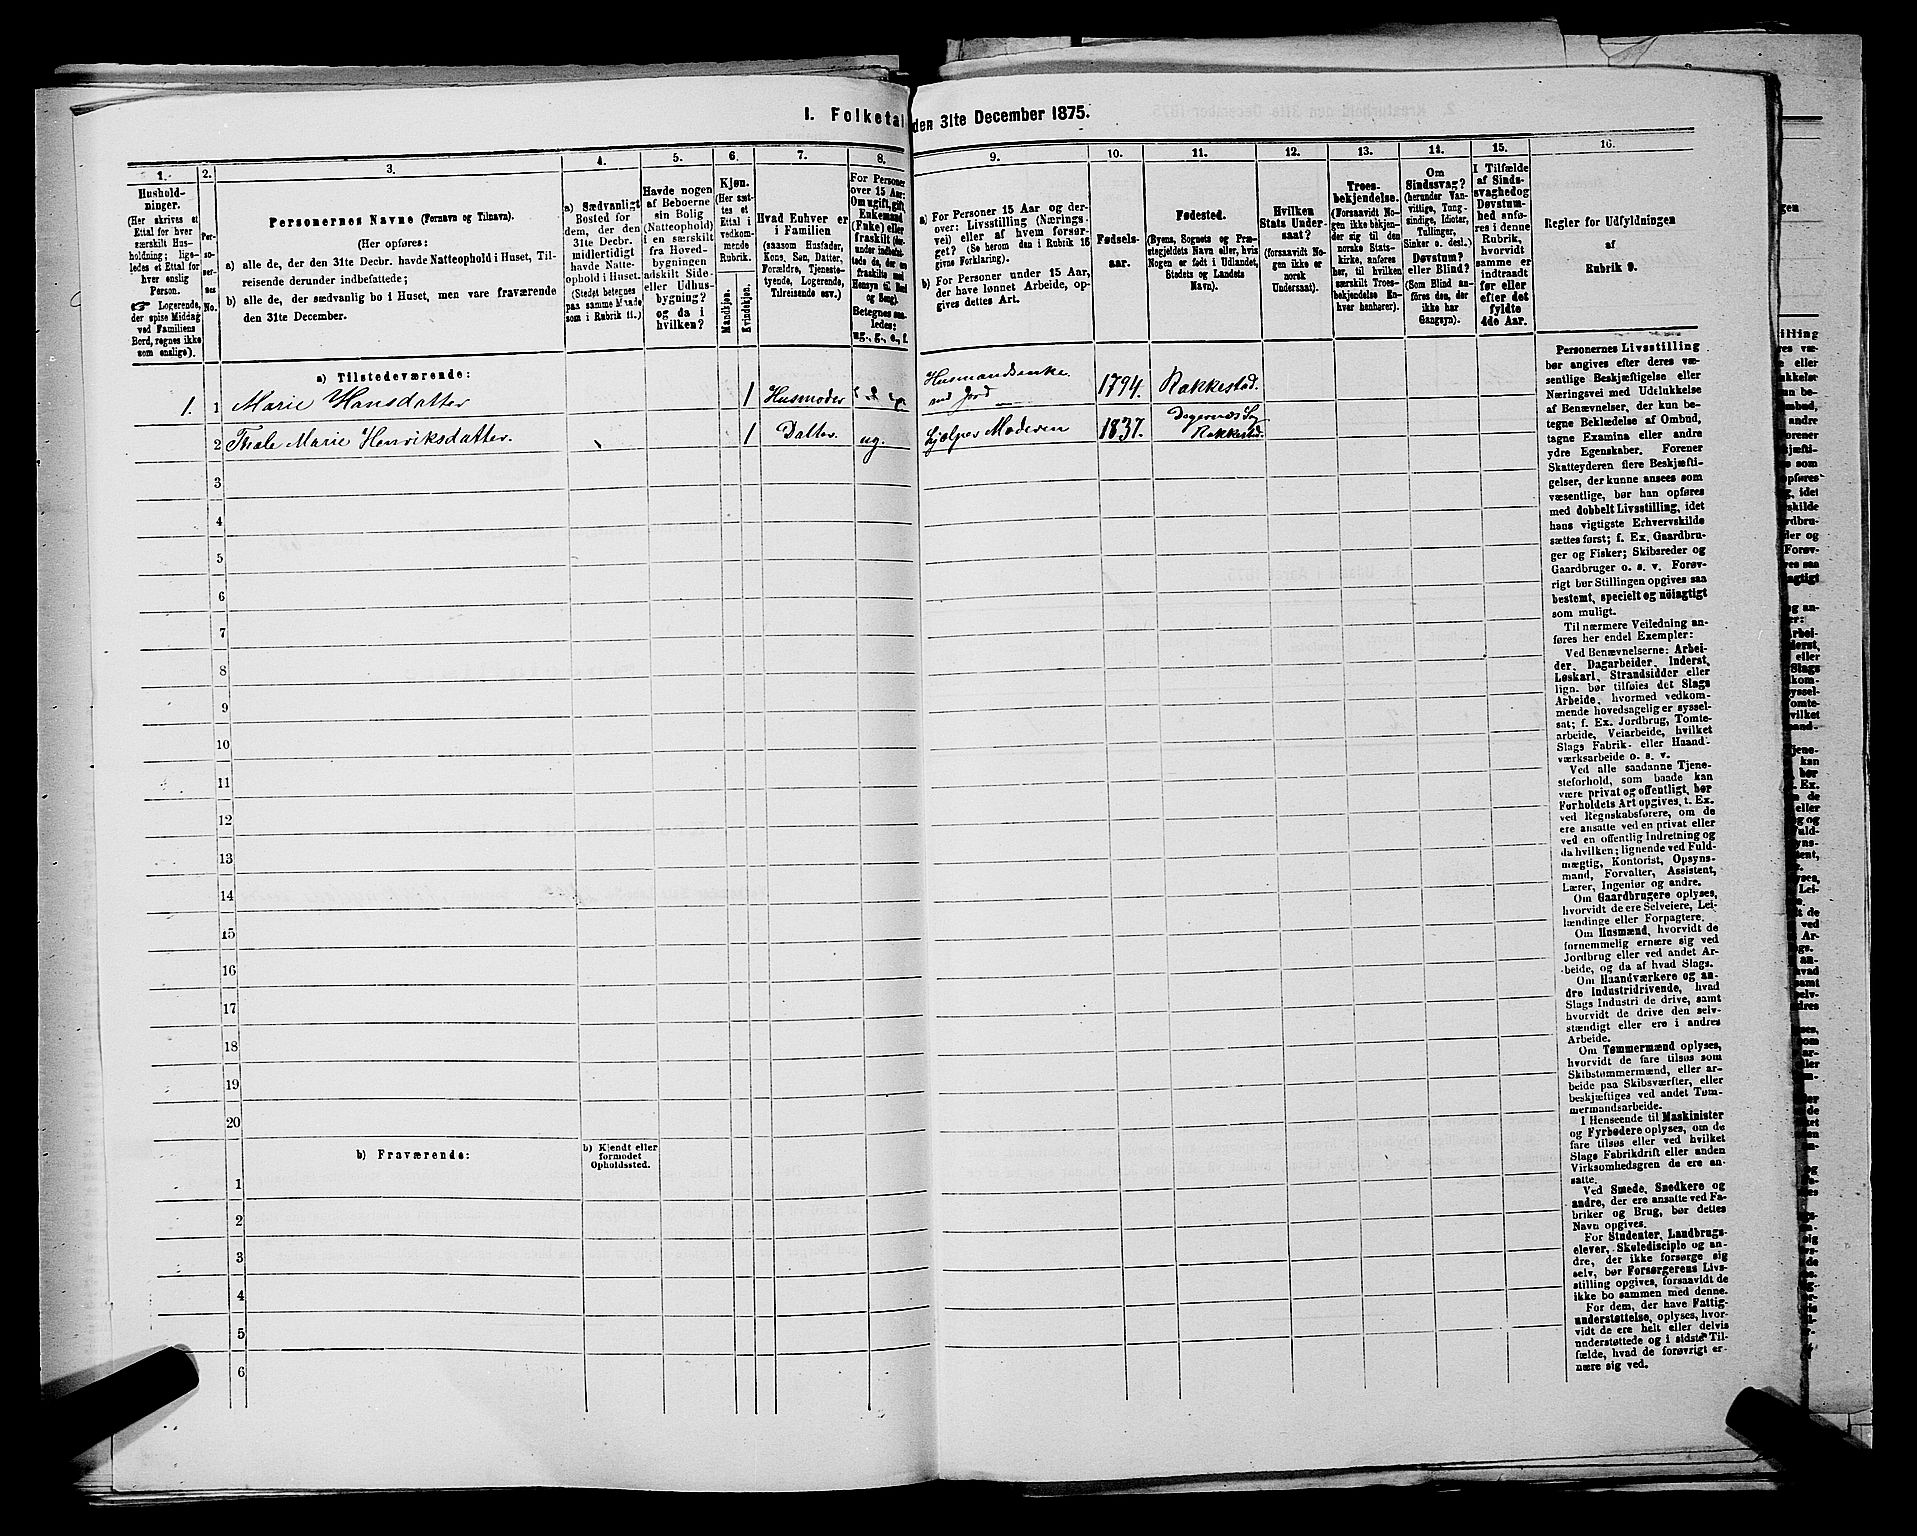 I. Folketal
den 31te December 1875.
1.
2.
3.
4.
5.
6.
7.
8.
9.
10.
11.
12.
13.
14.
15.
16.
Hushold-
ninger.
(Her skrives et
Ettal for hver
særskilt Hus-
holdning; lige-
ledes et Ettal for
hver enslig
Person.
☞ Logerende,
der spise Middag
ved Familiens
Bord, regnes ikke
som enslige).
Per-
so-
ner-
nes
No.
Personernes Navne (Fornavn og Tilnavn).
(Her opføres:
a) alle de, der den 31te Decbr. havde Natteophold i Huset, Til-
reisende derunder indbefattede;
b) alle de, der sædvanlig bo i Huset, men vare fraværende
den 31te December.
a) Sædvanligt
Bosted for
dem, der den
31te Decbr.
midlertidigt
havde Natte-
ophold i Huset.
(Stedet betegnes
paa samme Maade
som i Rubrik 11.)
Havde nogen
af Beboerne
sin Bolig
(Natteophold)
i en særskilt
fra Hoved-
bygningen
adskilt Side-
eller Udhus-
bygning?
og da i
hvilken?
Kjøn.
(Her sæt-
tes et
Ettal i
vedkom-
mende
Rubrik.
Mandkjøn.
Kvindekjøn.
Hvad Enhver er
i Familien
(saasom Husfader,
Kone, Søn, Datter,
Forældre, Tjeneste-
tyende, Logerende,
Tilreisende osv.)
For Personer
over 15 Aar:
Om ugift, gift,
Enkemand
(Enke) eller
fraskilt
Betegnes saa-
ledes:
ug., g., e., f.
a) For Personer 15 Aar og der-
over: Livsstilling (Nærings-
vei) eller af hvem forsør-
get? (Se herom den i Rubrik 16
givne Forklaring).
b) For Personer under 15 Aar,
der have lønnet Arbeide, op-
gives dettes Art.
Fødsels-
aar.
Fødested.
(Byens, Sognets og Præ-
stegjeldets Navn eller, hvis
Nogen er født i Udlandet,
Stedets og Landets
Navn).
Hvilken
Stats Under-
saat?
(forsaavidt No-
gen ikke er
norsk
Undersaat).
Troes-
bekjendelse.
(Forsaavidt No-
gen ikke bekjen-
der sig til den
norske Stats-
kirke, anføres
her, til hvilken
særskilt Troes-
bekjendelse En-
hver henhører).
Om
Sindssvag?
(herunder Van-
vittige, Tung-
sindige, Idioter,
Tullinger,
Sinker o. desl.)
Døvstum?
eller Blind?
(Som Blind an-
føres den, der
ikke har
Gangsyn).
I Tilfælde
af Sinds-
svaghed og
Døvstum-
hed anfø-
res i denne
Rubrik,
hvorvidt
samme er
indtraadt
før eller
efter det
fyldte
4de Aar.
Regler for Udfyldningen
af
Rubrik 9.
a) Tilstedeværende:
1. 1 Marie Hansdatter 1 Husmoder Husmandsenke 1794. Rakkestad.
2 Marie Henriksdatter. 1 Datter ug. hjælper Moderen 1837. Degernes Sog
Rakkestad.
3
4
5
6
7
8
9
10
11
12
13
14
15
16
17
18
19
20
b) Fraværende:
b) Kjendt eller
formodet
Opholdssted.
1
2
3
4
5
6
Personernes Livsstilling
bør angives efter deres væ-
sentlige Beskjæftigelse eller
Næringsvei med Udelukkelse
af Benævnelser, der kun be-
tegne Beklædelse af Ombud,
tagne Examina eller andre
ydre Egenskaber. Forener
Skatteyderen flere Beskjæfti-
gelser, der kunne ansees som
væsentlige, bør han opføres
med dobbelt Livsstilling, idet
hans vigtigste Erhvervskilde
sættes først; f. Ex. Gaardbru-
ger og Fisker; Skibsreder og
Gaardbruger o. s. v. Forøv-
rigt bør Stillingen opgives saa
bestemt, specielt og nöiagtigt
som muligt.
Til nærmere Veiledning an-
føres her endel Exempler:
Ved Benævnelserne: Arbei-
der, Dagarbeider, Inderst,
Løskarl, Strandsidder eller
lign. bør tilføies det Slags
Arbeide, hvormed vedkom-
mende hovedsagelig er syssel-
sat; f. Ex. Jordbrug, Tomte-
arbeide, Veiarbeide, hvilket
Slags Fabrik- eller Haand-
værksarbeide o. s. v.
Ved alle saadanne Tjene-
steforhold, som baade kan
være privat og offentligt, bør
Forholdets Art opgives, t. Ex.
ved Regnskabsførere, om de
ere ansatte ved en privat eller
ved en offentlig Indretning og
da hvilken; lignende ved Fuld-
mægtig, Kontorist, Opsyns-
mand, Forvalter, Assistent,
Lærer, Ingeniør og andre.
Om Gaardbrugere oplyses,
hvorvidt de ere Selveiere, Lei-
lændinge eller Forpagtere.
Om Husmænd, hvorvidt de
fornemmelig ernære sig ved
Jordbrug eller ved andet Ar-
beide, og da af hvad Slags.
Om Haandværkere og an-
dre Industridrivende, hvad
Slags Industri de drive, samt
hvorvidt de drive den selv-
stændigt eller ere i andres
Arbeide.
Om Tømmermænd oplyses,
hvorvidt de fare tilsøs som
Skibstømmermænd, eller ar-
beide paa Skibsværfter, eller
beskjæftiges ved andet Tøm-
mermandsarbeide.
I Henseende til Maskinister
og Fyrbødere oplyses, om de
fare tilsøs eller ved hvilket
Slags Fabrikdrift eller anden
Virksomhedsgren de ere an-
satte.
Ved Smede, Snedkere og
andre, der ere ansatte ved Fa-
briker og Brug, bør dettes
Navn opgives.
For Studenter, Landbrugs-
elever, Skoledisciple og an-
dre, der ikke forsørge sig
selv, bør Forsørgerens Livs-
stilling opgives, forsaavidt de
ikke bo sammen med denne.
For dem, der have Fattig-
understøttelse, oplyses, hvor-
vidt de ere helt eller delvis
understøttede og i sidste Til-
fælde, hvad de forøvrigt er-
nære sig ved.